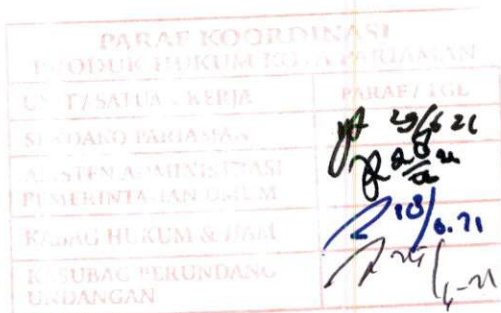 PARAF KOORDINASI
PRODUK HUKUM KOTA PARIAMAN
UNIT / SATUAN KERJA PARAF / TGL
SEKDAKO PARIAMAN 29/6 21
ASISTEN ADMINISTRASI
PEMERINTAHAN UMUM
KABAG HUKUM & HAM
KASUBAG PERUNDANG
UNDANGAN